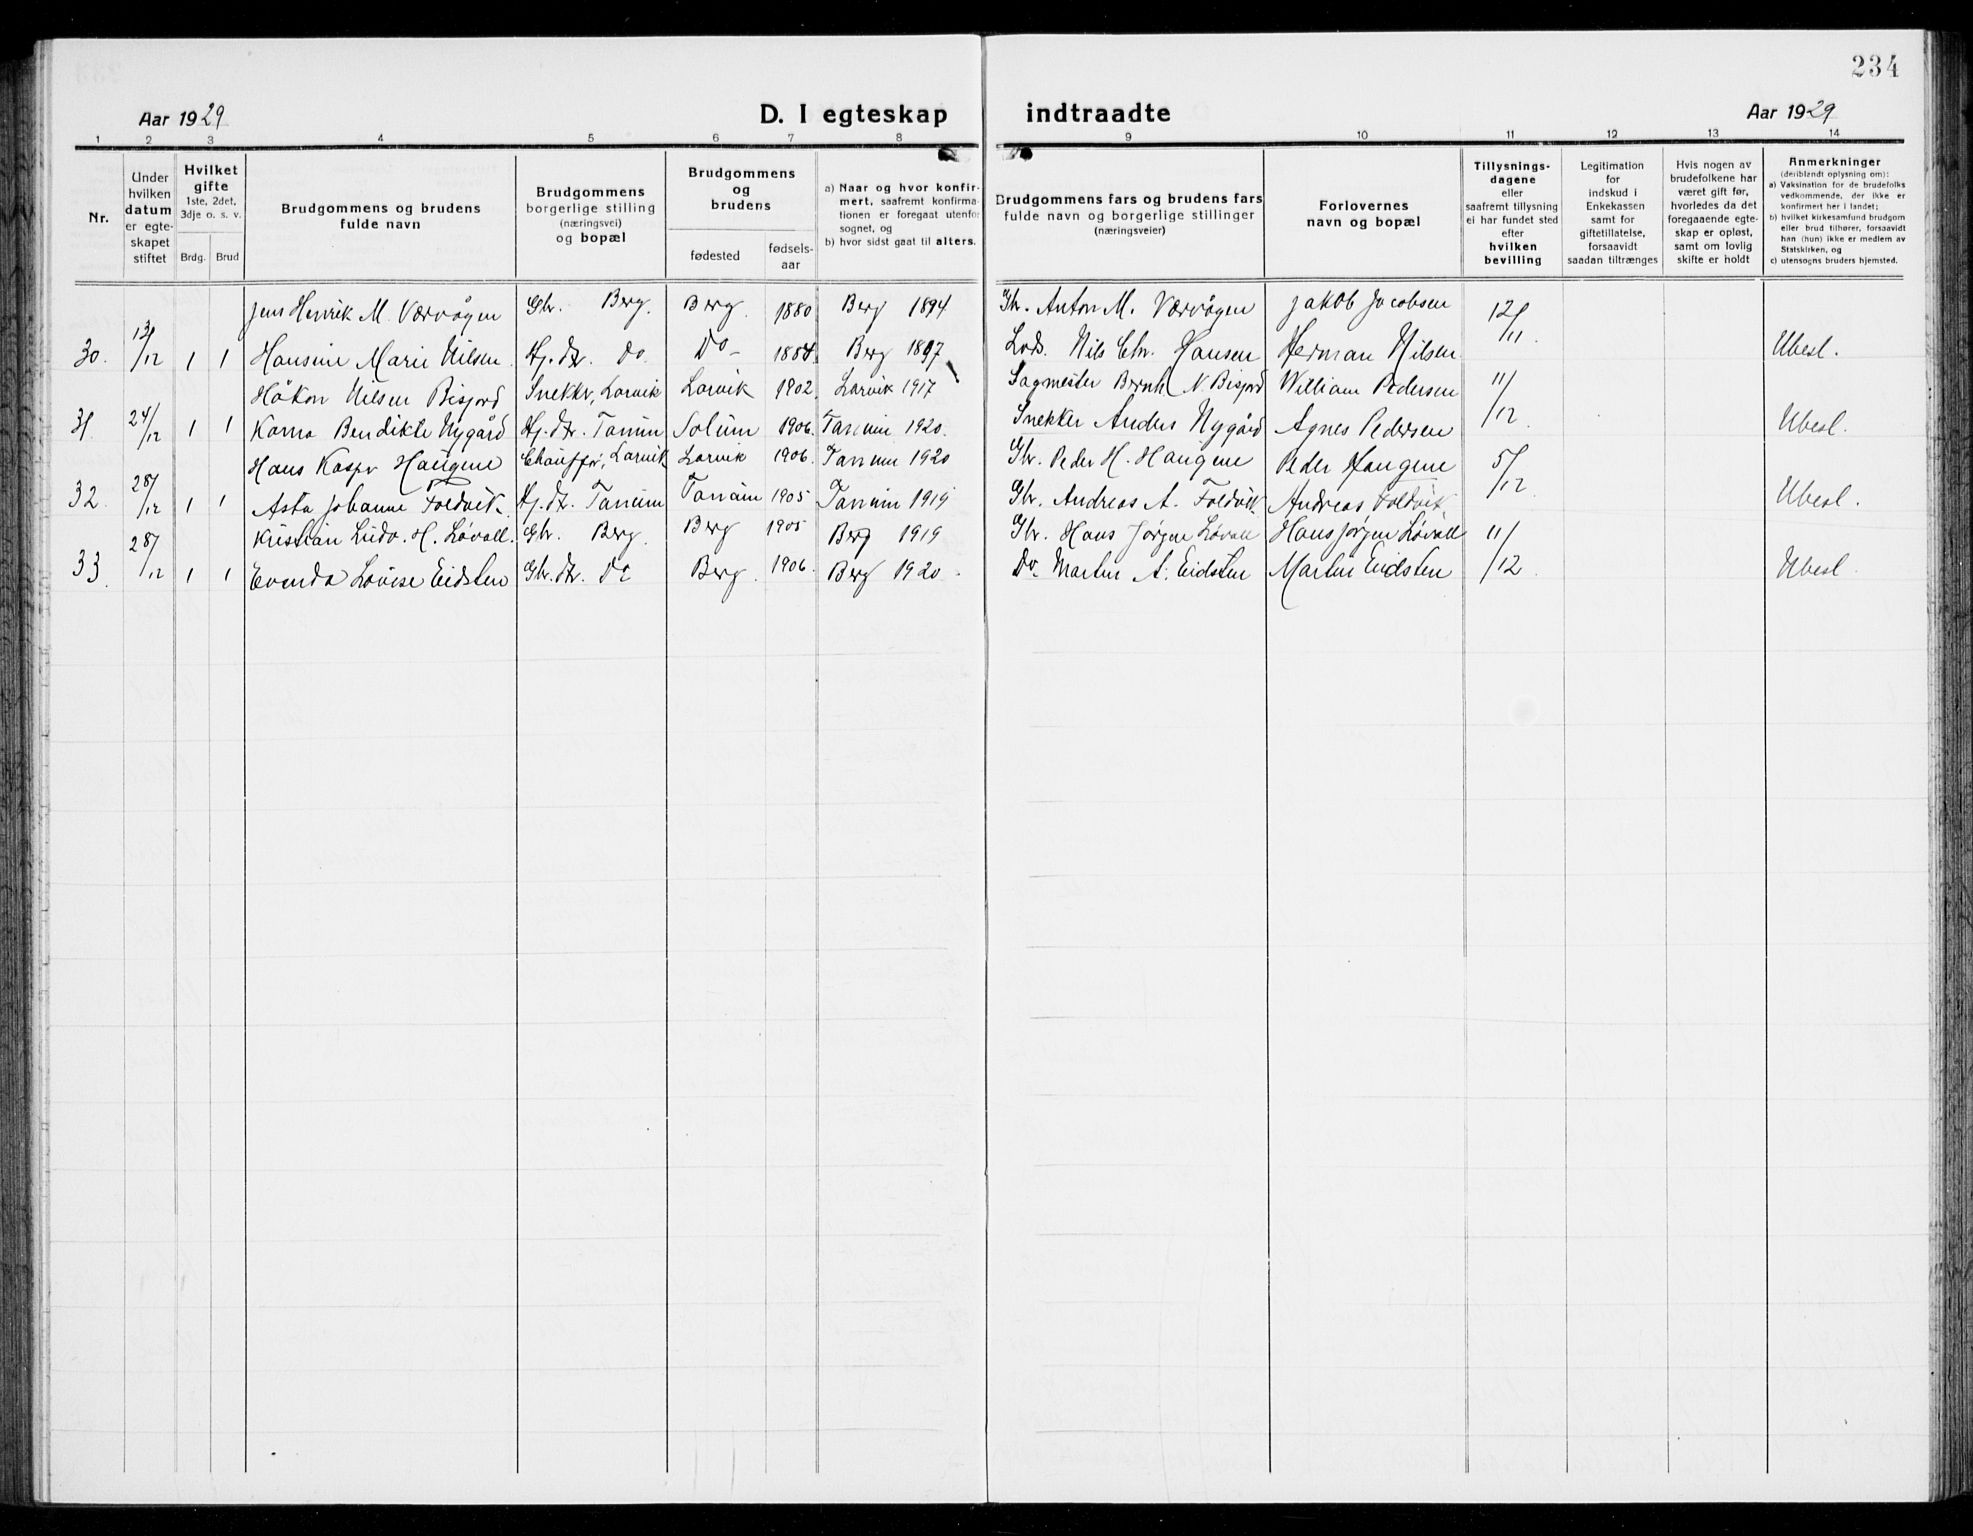 234
Aar 1929 D. I egteskap indtraadte Aar 1929
1 2 3 4 5 6 7 8 9 10 11 12 13 14
Nr.
Under hvilken datum er egteskapet stiftet
Hvilket gifte 1ste, 2det, 3dje o. s. v.
Brdg. Brud
Brudgommens og brudens fulde navn
Brudgommens borgerlige stilling (næringsvei) og bopæl
Brudgommens og brudens
fødested fødsels-aar
a) Naar og hvor konfir-
mert, saafremt konfirma-
tionen er foregaat utenfor
sognet, og
b) hvor sidst gaat til alters.
Brudgommens fars og brudens fars
fulde navn og borgerlige stillinger
(næringsveier)
Forlovernes
navn og bopæl
Tillysnings-
dagene
eller
saafremt tillysning
ei har fundet sted
efter
hvilken
bevilling
Legitimation
for
indskud i
Enkekassen
samt for
giftetillatelse,
forsaavidt
saadan tiltrænges
Hvis nogen av
brudefolkene har
været gift før,
hvorledes da det
foregaaende egte-
skap er opløst,
samt om lovlig
skifte er holdt
Anmerkninger
(deriblandt oplysning om):
a) Vaksination for de brudefolks
vedkommende, der ikke er
konfirmert her i landet;
b) hvilket kirkesamfund brudgom
eller brud tilhører, forsaavidt
han (hun) ikke er medlem av
Statskirken, og
c) utensogns bruders hjemsted.
Jens Henrik M. Værvågen Gbr. Berg. Berg. 1880 Berg 1894 Gbr. Anton M. Værvågen Jakob Jacobsen 12/11
30. 13/12 1 1 Hansine Marie Nilsen Hj. dtr. do. Do 1884 Berg 1897 Lods. Nils Chr. Hansen Herman Nilsen. Ubesl.
Håkon Nilsen Bisjord Snekker, Larvik Larvik 1902. Larvik 1917 Sagmester Bernh. N. Bisjord William Pedersen 11/12
31. 24/12 1 1 Karna Bendikte Nygård Hj. dtr. Tanum Solum 1906. Tanum 1920. Snekker Anders Nygård Agnes Pedersen Ubesl.
Hans Kaspr Haugene Chauffør, Larvik Larvik 1906. Tanum 1920 Gbr. Peder H. Haugene Peder Haugene 5/12
32. 28/12 1 1 Asta Johanne Foldvik Hj. dtr. Tanum Tanum 1905 Tanum 1919 Gbr. Andreas A. Foldvik Andreas Foldvik. Ubesl.
Kristian Ludv. H. Løvall. Gbr. Berg. Berg 1905 Berg 1919 Gbr. Hans Jørgen Løvall Hans Jørgen Løvall 11/12
33. 28/12 1 1 Evenda Lovise Eidsten Gbr. dtr. Do Berg. 1906. Berg 1920. Do. Martin A. Eidsten Martin Eidsten Ubesl.